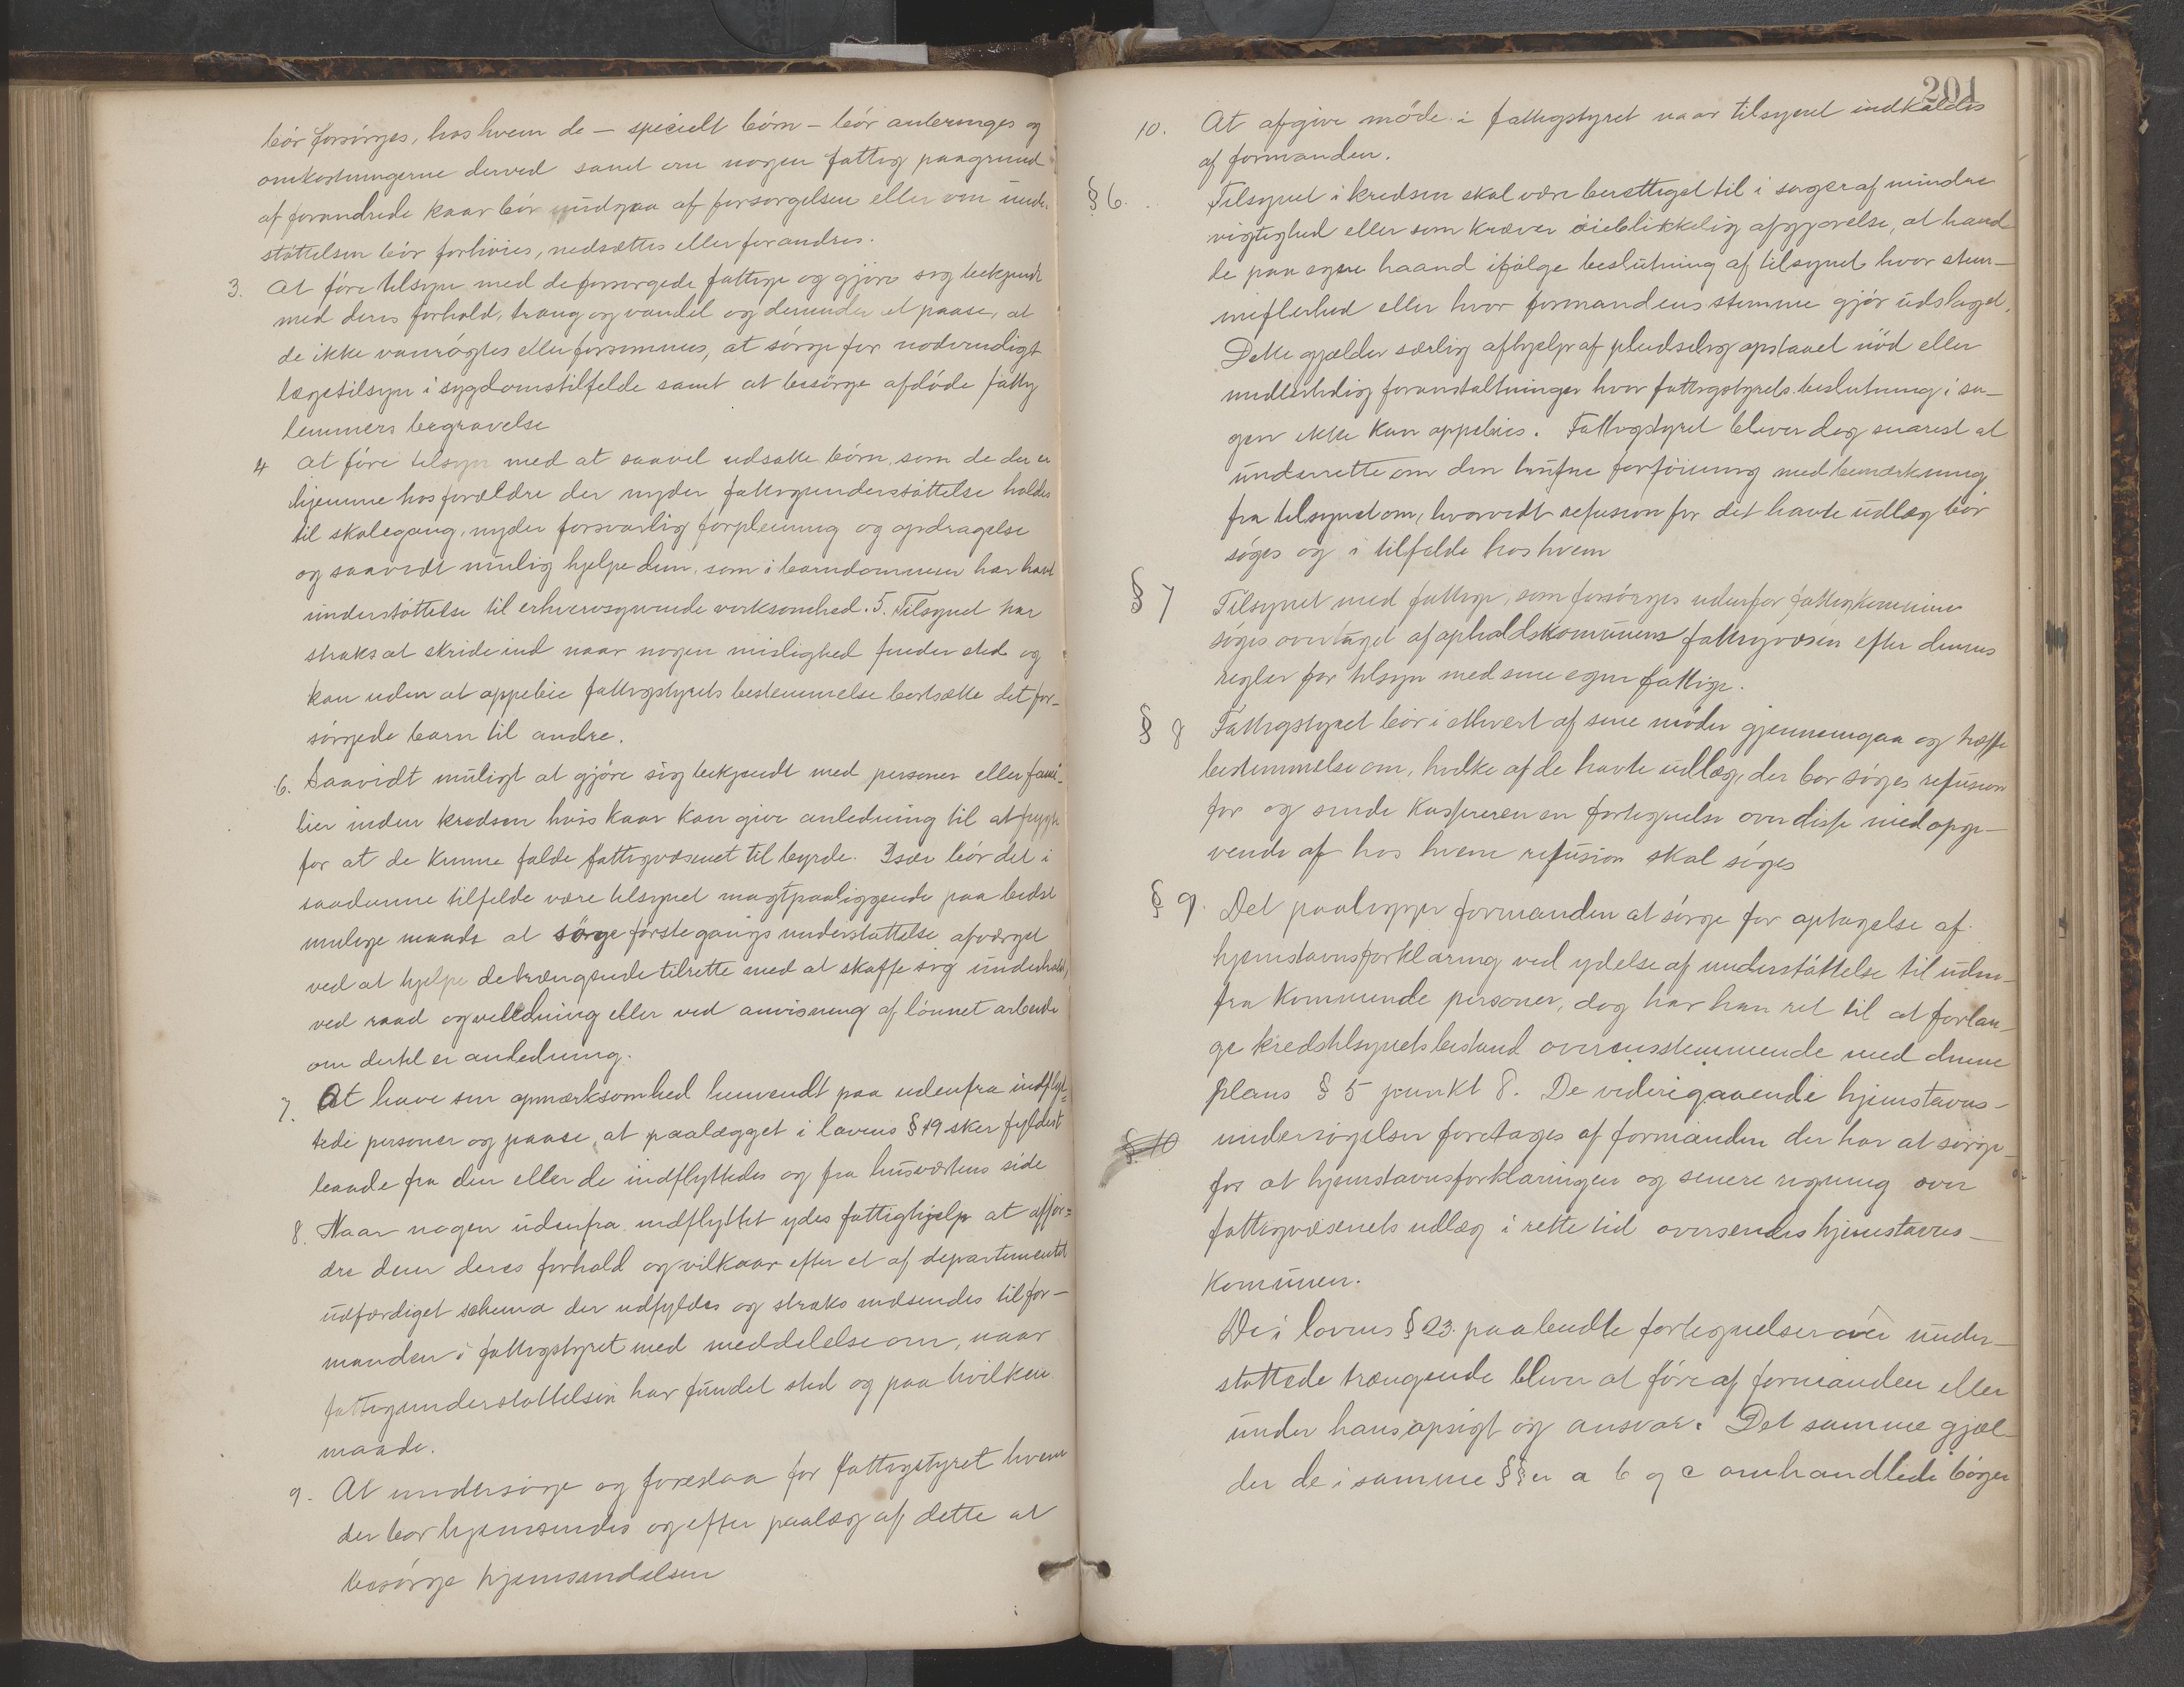 bør forsørges, hos hvem de – specielt børn – bør anbringes og
omkostningerne derved samt om nogen fattig paagrund
af forandrede kaar bør udgaa af forsørgelsen eller om under-
støttelsen bør forhøies, nedsættes eller forandres.
3. At føre tilsyn med de forsørgede fattige og gjøre sig bekjendt
med deres forhold, trang og vandel og derunder at paase, at
de ikke vanrøgtes eller forsømmes, at sørge for nødvendigt
lægetilsyn i sygdomstilfælde samt at besørge afdøde fattig
lemmers begravelse
4 At føre tilsyn med at saavel udsatte børn, som de der er
hjemme hos forældre der nyder fattigunderstøttelse holdes
til skolegang, nyder forsvarlig forpleining og opdragelse
og saavidt mulig hjelpe dem, som i barndommen har havt
understøttelse til erhvervsgivende virksomhed. 5. Tilsynet har
straks at skride ind naar nogen mislighed finder sted og
kan uden at appebie fattigstyrets bestemmelse bortsætte det for-
sørgede barn til andre.
6. Saavidt muligt at gjøre sig bekjendt med personer eller fami-
lier inden kredsen hvis kaar kan give anledning til at frygte
for at de kunne falde fattigvæsenet til byrde. Især bør det i
saadanne tilfælde være tilsynet magtpaaliggende paa bedst
mulige maade at sørge førstegangs understøttelse afværget
ved at hjelpe de trængende tilrette med at skaffe sig underhold,
ved raad og veiledning eller ved anvisning af lønnet arbeide
om dertil er anledning.
7. At have sin opmærksomhed henvendt paa udenfra indflyt-
tede personer og paase, at paalægget i lovens § 19 sker fyldest
leande fra den eller de indflyttedes og fra husværtens side
8. Naar nogen udenfra indflyttet ydes fattighjelp at affor=
dre dem deres forhold og vilkaar efter et af departementet
udfærdiget schema der udfyldes og straks indsendes til for-
manden i fattigstyret med meddelelse om, naar
fattigunderstøttelsen har fundet sted og paa hvilken
maade.
9. At undersøge og foreslaa for fattigstyret hvem
der bør hjemsendes og efter paalæg af dette at
besørge hjemsendelsen
201
10. At afgive møde i fattigstyret naar tilsynet indkaldes
af formanden.
§ 6. Tilsynet i kredsen skal være berettiget til i sager af mindre
vigtighed eller som kræver øieblikkelig afgjørelse, at hand-
le paa egen haand ifølge beslutning af tilsynet hvor stem-
meflerhed eller hvor formandens stemme gjør udslaget.
Dette gjælder særlig afhjelp af pludselig opstaaet nød eller
midlertidig foranstaltninger hvor fattigstyrets beslutning i sa-
gen ikke kan appebies. Fattigstyret bliver dog snarest at
underrette om den trufne forføining med bemærkning
fra tilsynet om, hvorvidt refusion for det havte udlæg bør
søges og i tilfælde hos hvem
§ 7 Tilsynet med fattige, som forsørges udenfor fattigkommunen
søges overtaget af opholdskommunens fattigvæsen efter dennes
regler for tilsyn med sine egne fattige.
§ 8 Fattigstyret bør i ethvert af sine møder gjennemgaa og træffe
bestemmelse om, hvilke af de havte udlæg, der bør søges refusion
for og sende Kassereren en fortegnelse over disse med opgi-
vende af hos hvem refusion skal søges
§ 9. Det paaligger formanden at sørge for optagelse af
hjemstavnsforklaring ved ydelse af understøttelse til uden-
fra kommende personer, dog har han ret til at forlan-
ge kredstilsynets bistand overensstemmende med denne
plans § 5 punkt 8. De videregaaende hjemstavns-
§ 10 undersøgelser foretages af formanden der har at sørge
for at hjemstavnsforklaringen og senere regning over
fattigvæsenets udlæg i rette tid oversendes hjemstavns-
kommunen.
De i lovens § 23 paabudte fortegnelser over under-
støttede trængende bliver at føre af formanden eller
under hans opsigt og ansvar. Det samme gjæl-
der de i samme §§er a b og c omhandlede bøger